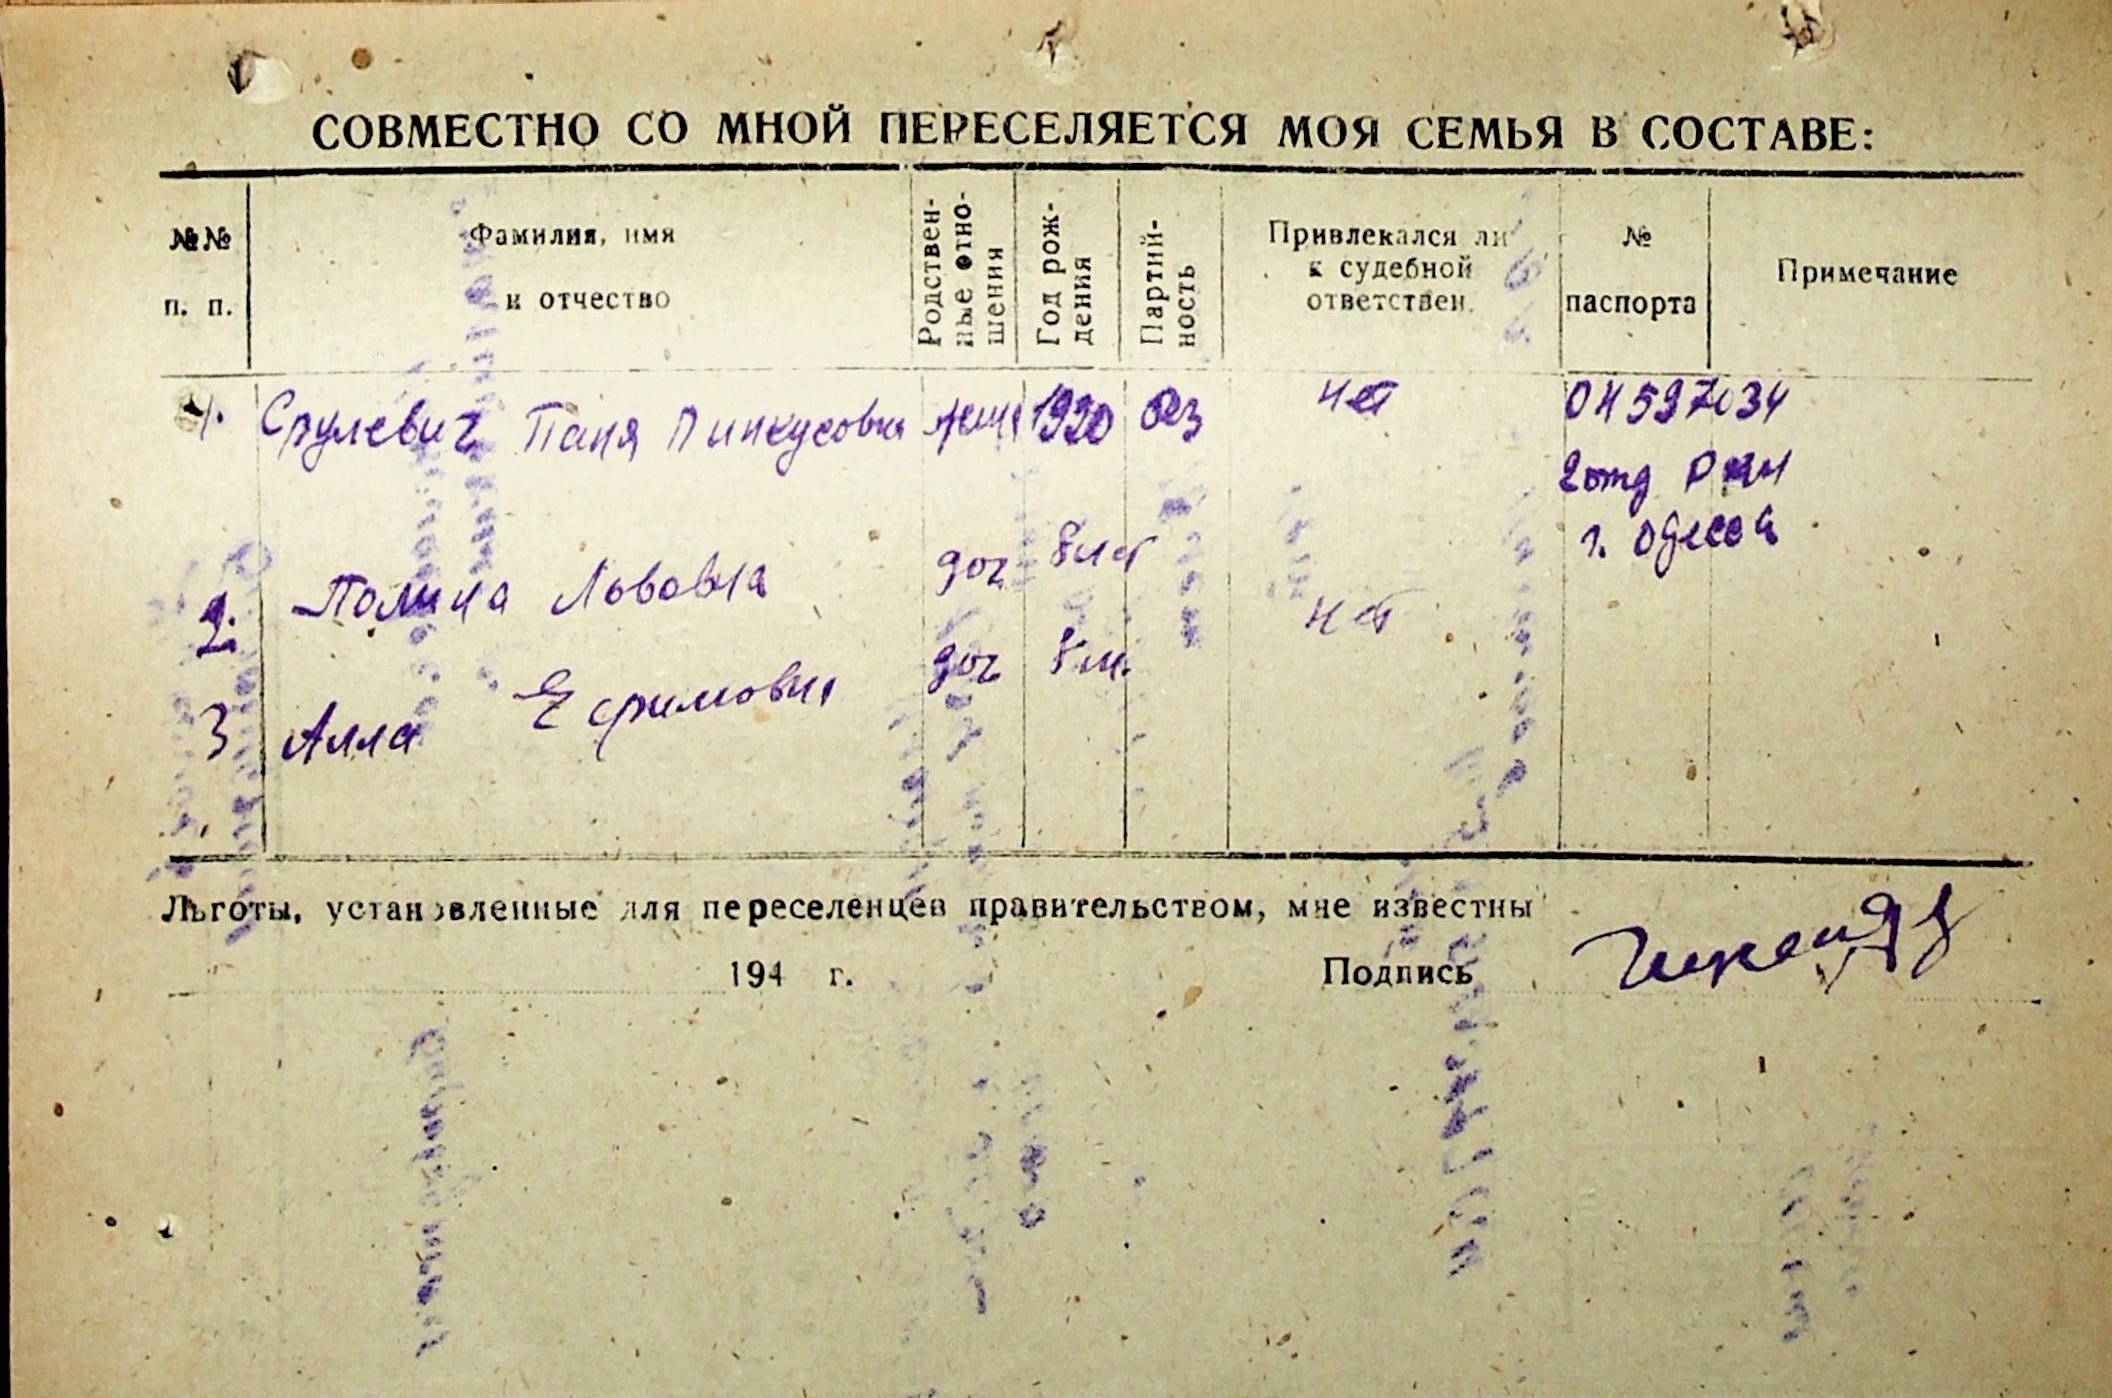 СОВМЕСТНО СО МНОЙ ПЕРЕСЕЛЯЕТСЯ МОЯ СЕМЬЯ В СОСТАВЕ:
№№ п. п.
Фамилия, имя и отчество
Родствен-
ные отно-
шения
Год рож-
дения
Партий-
ность
Привлекался ли
к судебной
ответствен.
№
паспорта
Примечание
1. Срулевич Паня Пинкусовна жена 1920 нет
2 отд
г. Одесса
2. Полина Львовна доч 8 лет нет
3 Алла Ефимовна доч
Льготы, установленные для переселенцев правительством, мне известны
194 г. Подпись